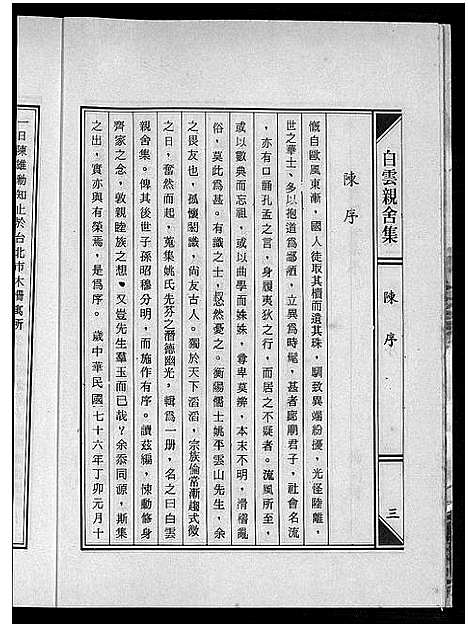 白雲親舍集
陳序
三
陳序
慨自歐風東漸，國人徒取其櫝而遺其珠，馴致異端紛擾，光怪陸離，
世之華士、多以抱道為鄙陋，立異為時髦，甚者廊廟君子，社會名流
，亦有口誦孔孟之言，身履夷狄之行，而居之不疑者。流風所至，
或以數典而忘祖，或以曲學而姝姝，尊卑莫辨，本末不明，滑稽亂
俗，莫此為甚。有識之士，怒然憂之。衡陽儒士姚平雲山先生，余
之畏友也，孤懷閎識，尚友古人。獨於天下滔滔，宗族倫常漸趨式微
之日，奮然而起，蒐集姚氏先芬之潛德幽光，輯為一册，名之曰白雲
親舍集。俾其後世子孫昭穆分明，而施作有序。讀茲編，悚動修身
齊家之念，敦親睦族之想，又豈先生羣玉而已哉？余忝同源，斯集
之出，實亦與有榮焉，是為序。 歲中華民國七十六年丁卯元月十
一日陳雄勳知止於台北市木柵寓所